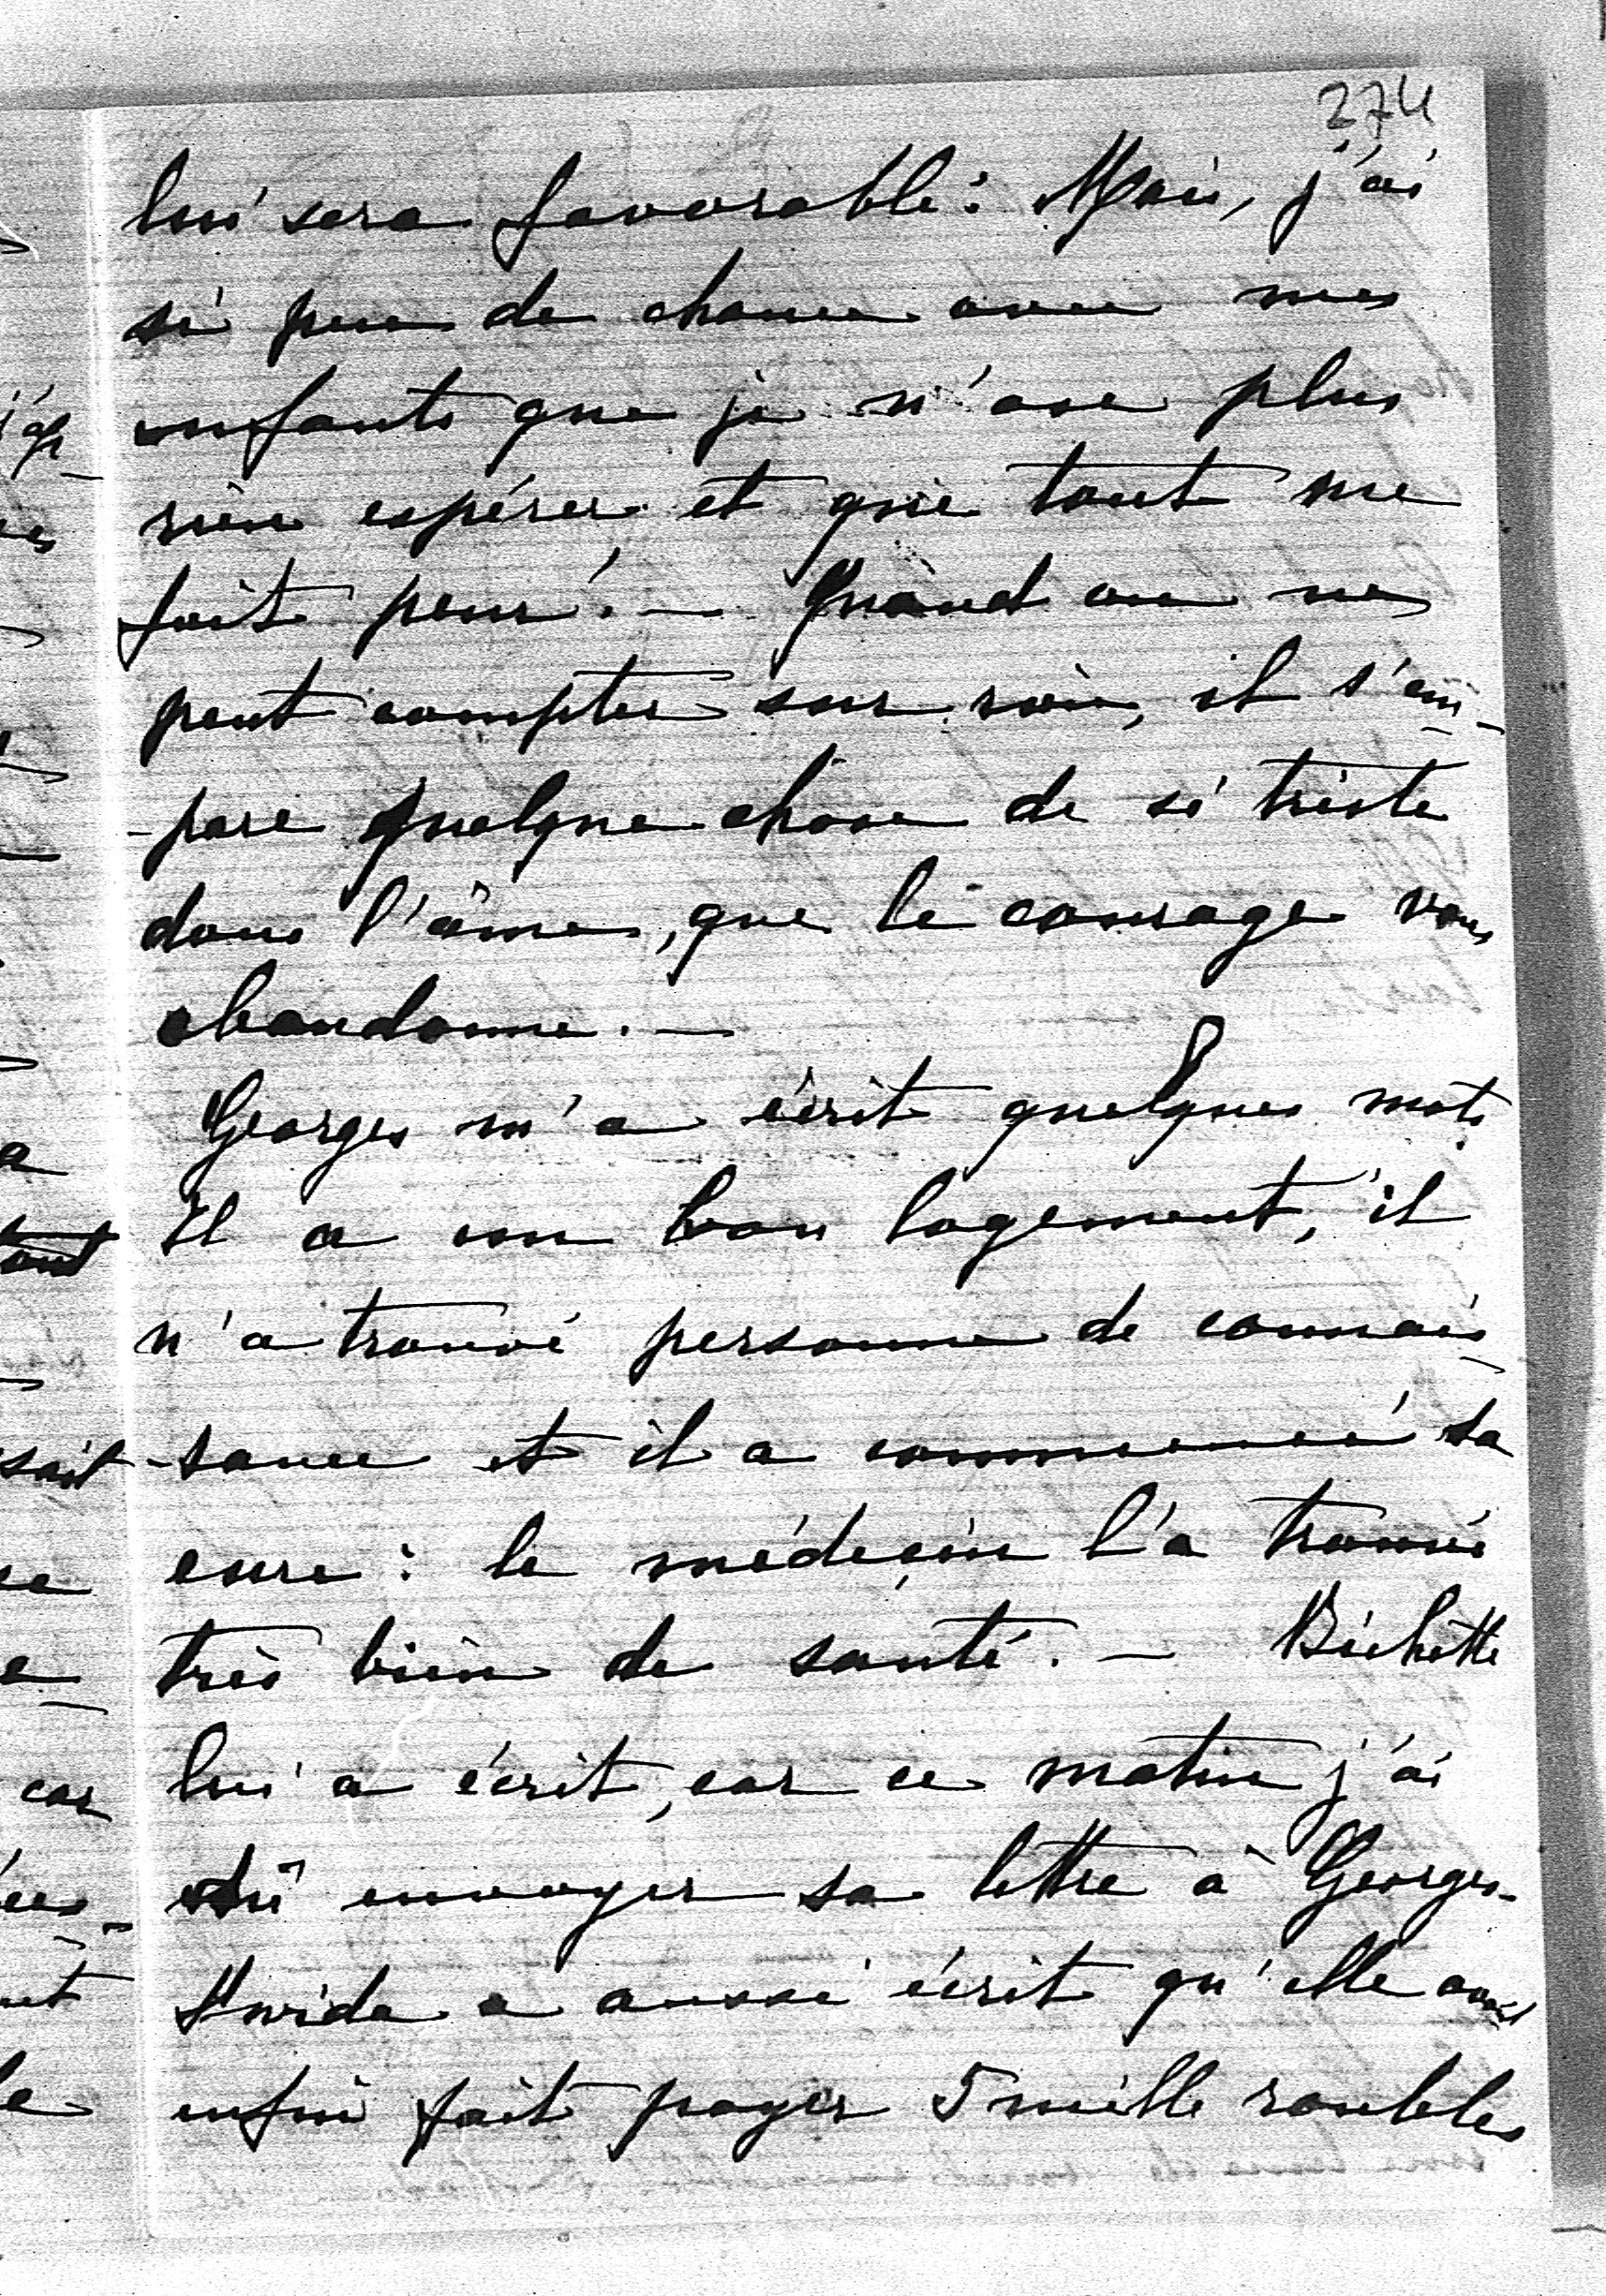 274
lui sera favorable: Mais, j'ai
si peu de chance avec mes
enfants que je n'ose plus
rien espérer, et que tout me
fait peur. — Quand on ne
peut compter sur rien, il s'em-
-pare quelque chose de si triste
dans l'âme, que le courage vous
abandonne. —
Georges m'a écrit quelques mots.
Il a un bon logement, il
n'a trouvé personne de connais-
-sance et il a commencé sa
cure: le médecin l'a trouvé
très bien de santé. — Bichette
lui a écrit, car ce matin j'ai
dû envoyer sa lettre à Georges.
a aussi écrit qu'elle avait
enfin fait payer 5 mille roubles